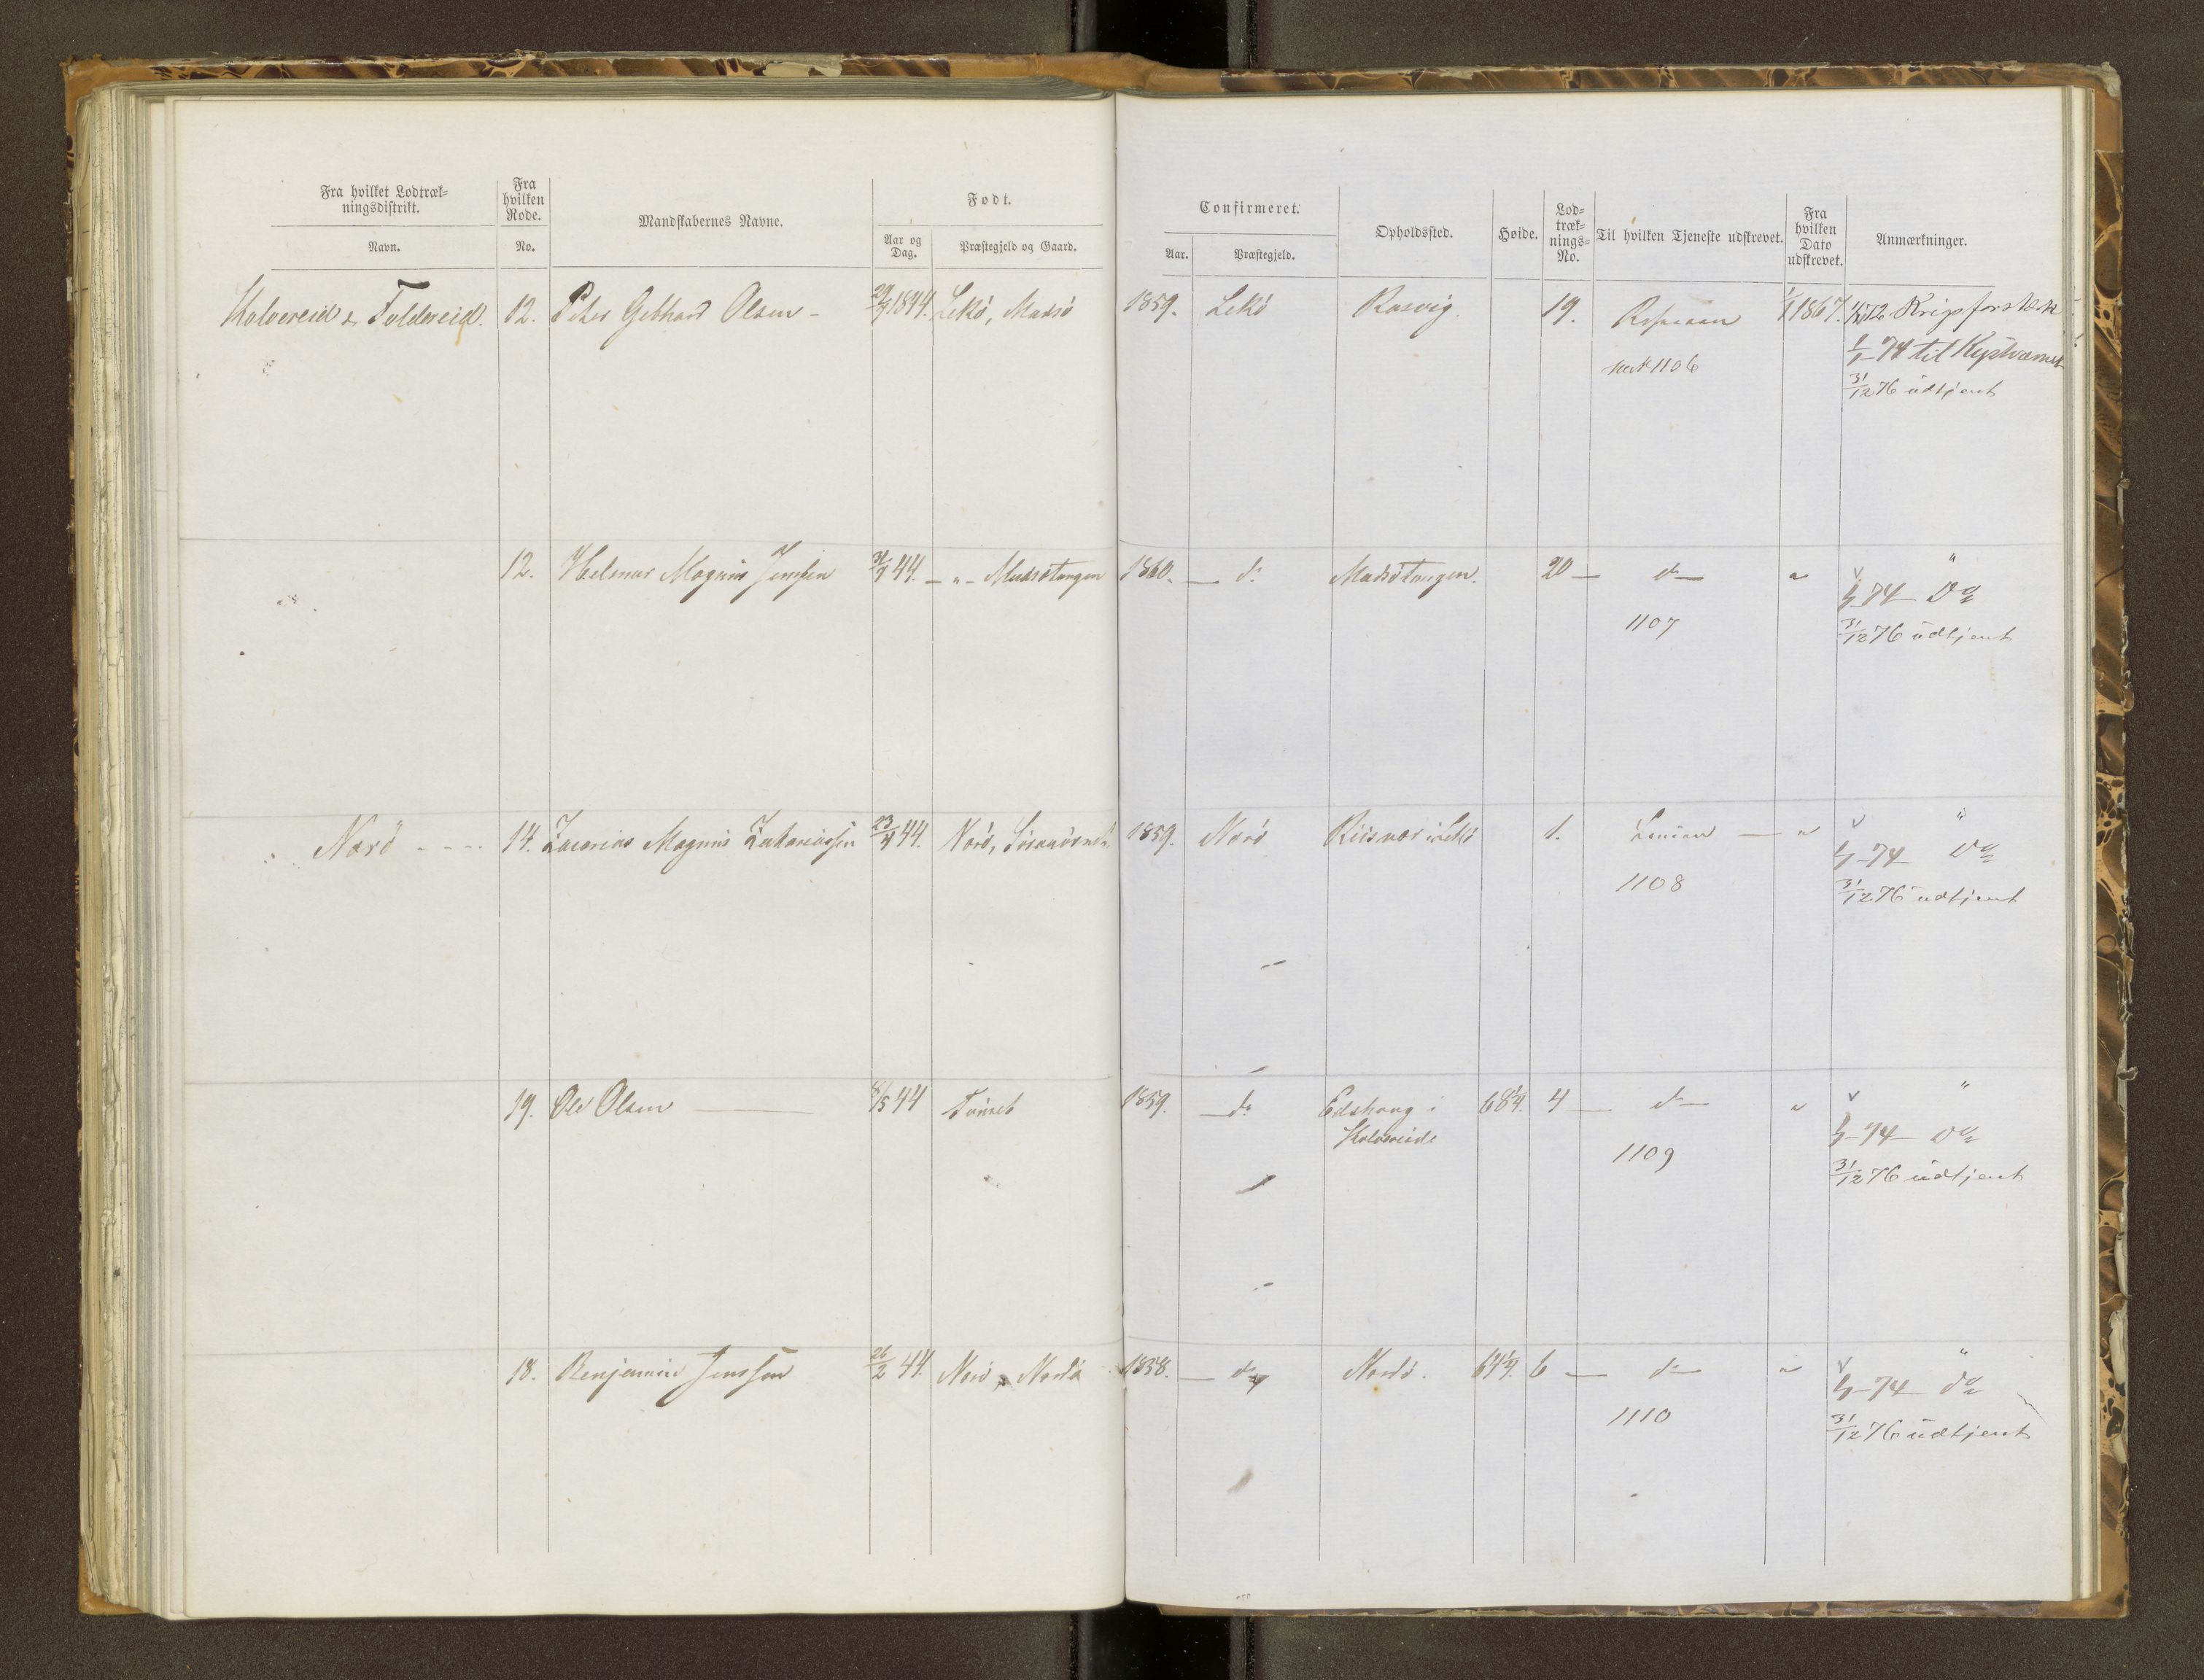 Fra hvilket Lodtræk-
ningsdistrikt.
Navn.
Fra
hvilken
Rode.
No.
Mandskabernes Navne.
Født.
Aar og
Dag.
Præstegjeld og Gaard.
Confirmeret.
Aar.
Præstegjeld.
Opholdssted.
Høide.
Lod-
træk-
nings-
No.
Til hvilken Tjeneste udskrevet.
Fra
hvilken
Dato
udskrevet.
Anmærkninger.
Kolvereid & Foldereid. 12. Peter Gebhard Olsen - 29/9 1844. Lekö, Madsö 1859. Lekö Rosvig. 19. 1/1 1867. 1/1 72 Krigsforstærk
1106
1/1 74 til Kystværnet
31/12 76 udtjent
12. Helmer Magnus Jenssen 31/7 44. - " - Madsötangen 1860. — do Madsötangen. 20 — do — "
1/1 74 Do
1107
31/12 76 udtjent
Narö - - - - 14. Zacarias Magnus Zakariassen 23/4 44. Narö, 1859. Narö Riisvær i Lekö 1. Linien — "
1/1 74 Do
1108
31/12 76 udtjent
19. Ole Olsen — 8/5 44 1859. — do Edshaug i 68 1/4. 4 — do — "
Kolvereide
1/1 74 Do
1109
31/12 76 udtjent
18. Benjamin Jenssen 26/2 44. Narö, 1858. — do 64 1/4 6 — do — "
1/1 74 do
1110
31/12 76 udtjent